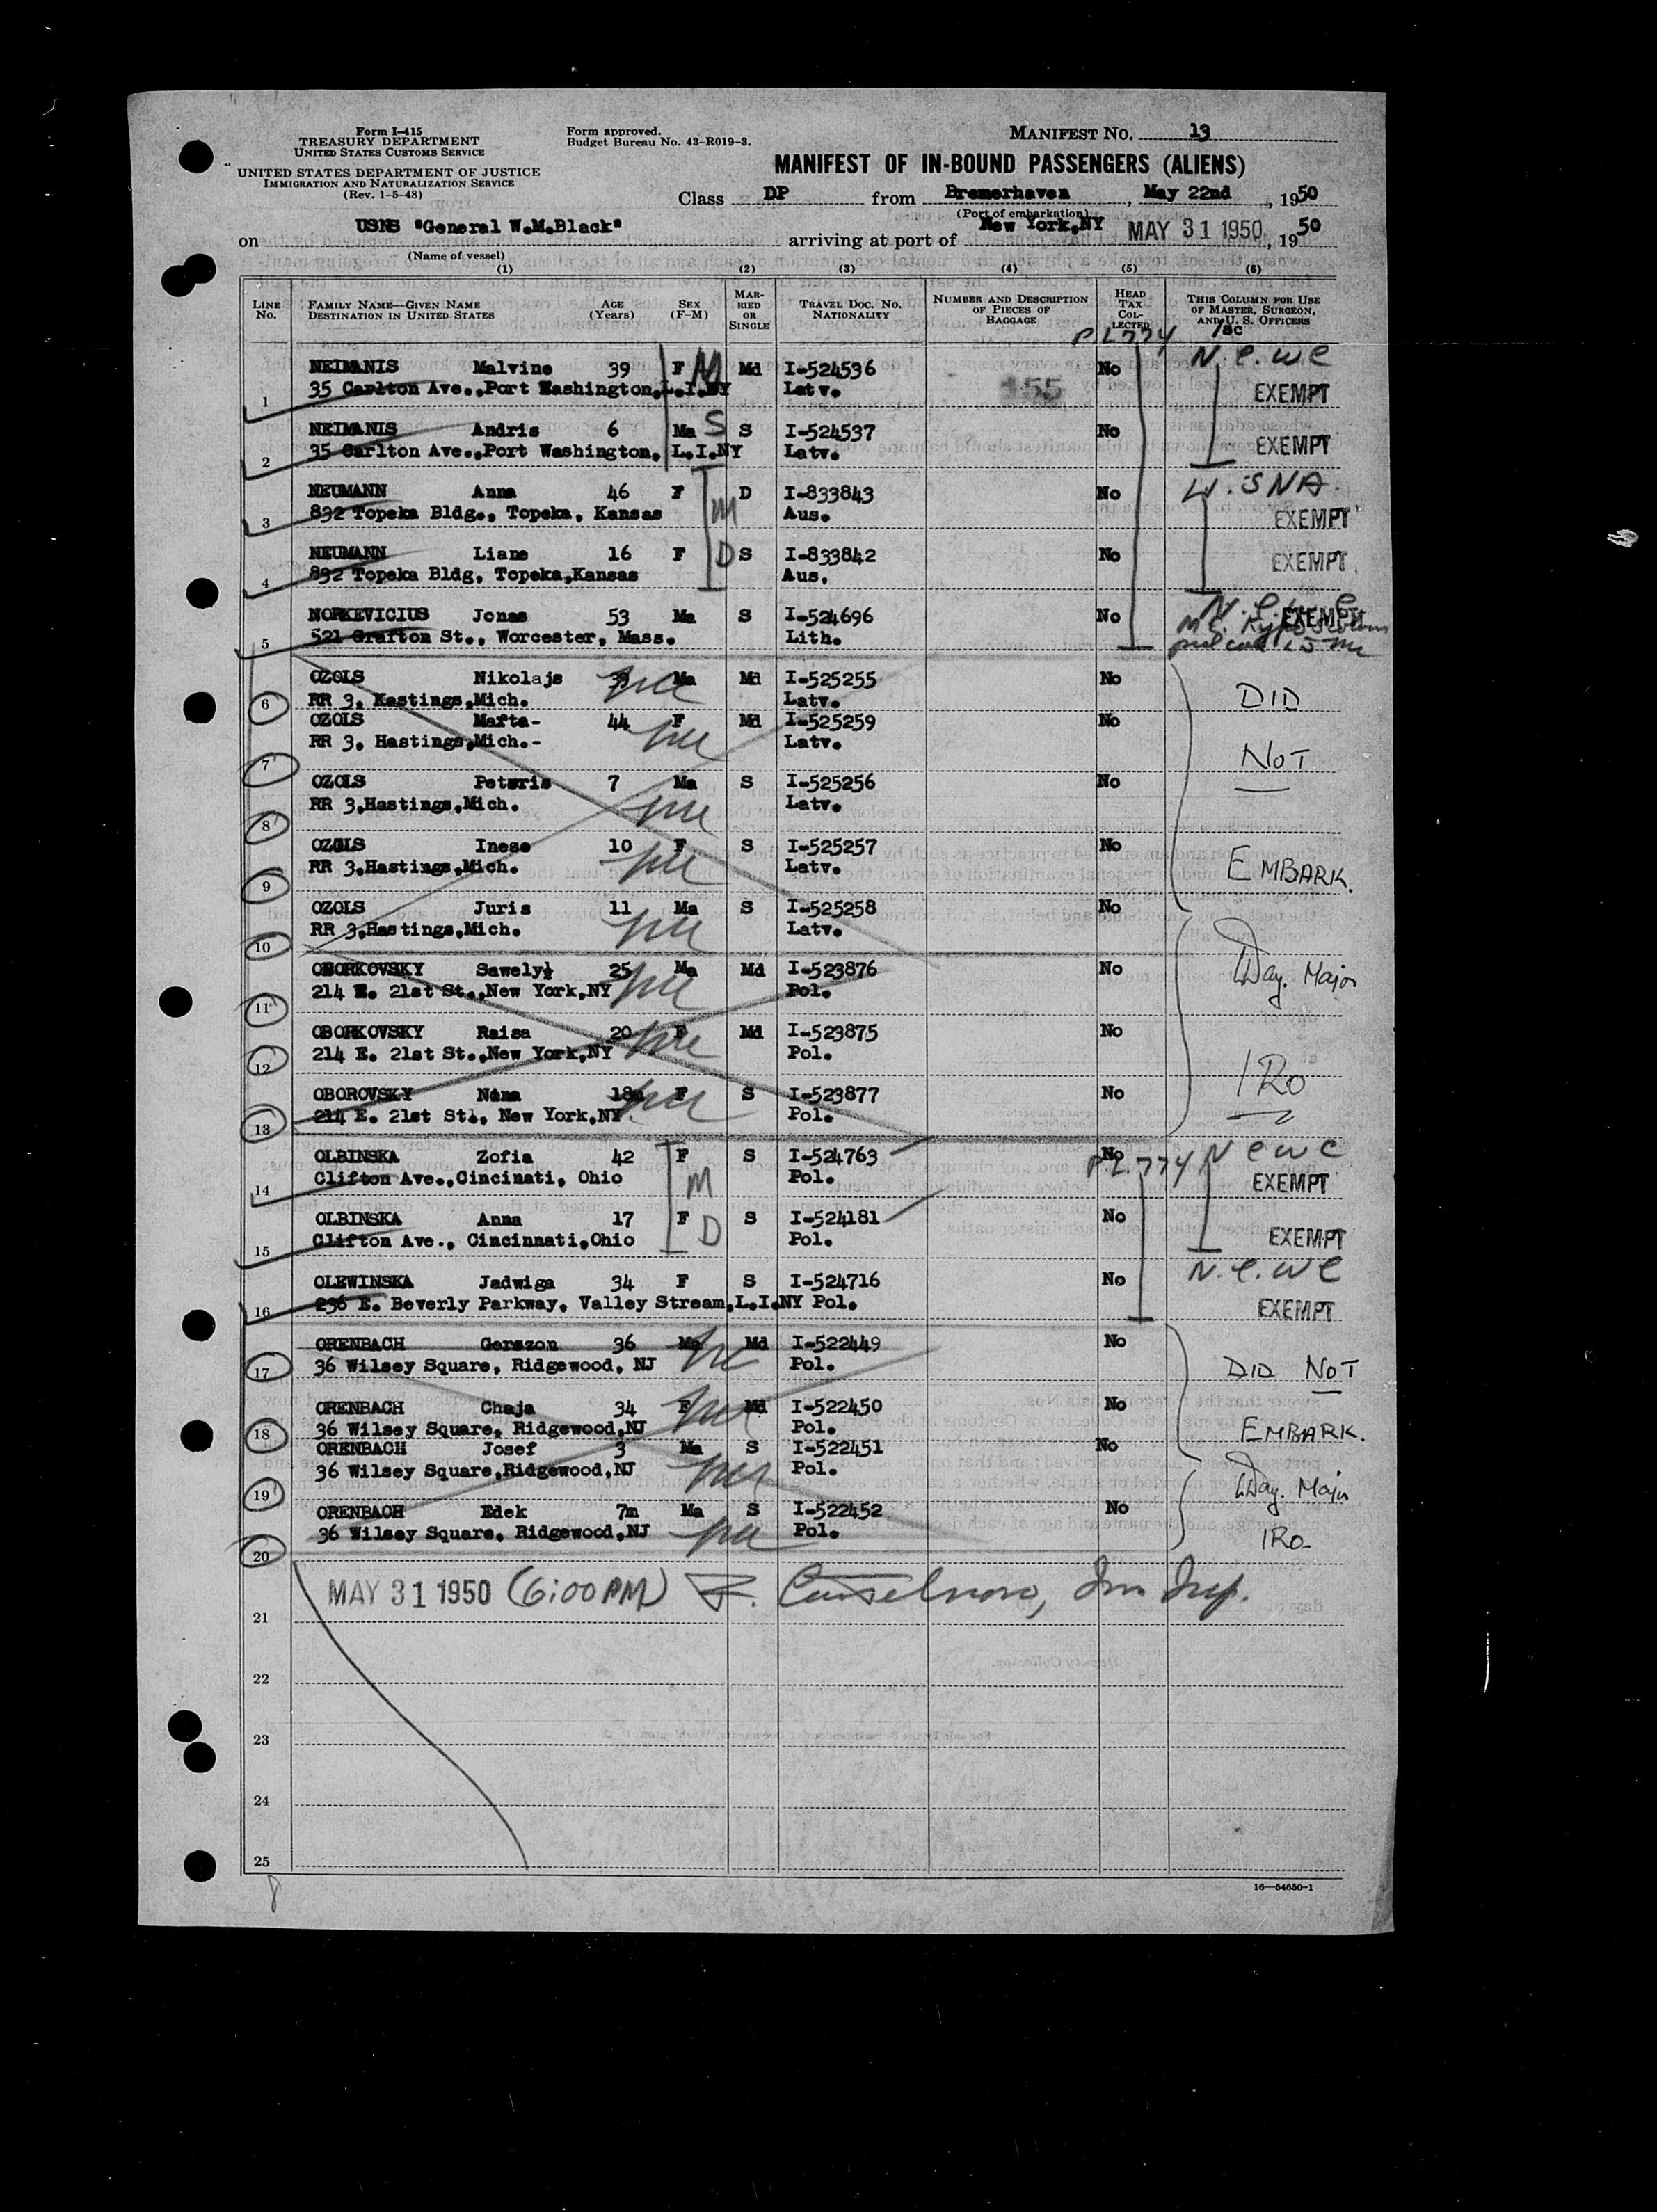 Form I-415
TREASURY DEPARTMENT
UNITED STATES CUSTOMS SERVICE
UNITED STATES DEPARTMENT OF JUSTICE
IMMIGRATION AND NATURALIZATION SERVICE
(Rev. 1-5-48)
Form approved.
Budget Bureau No. 43-R019-3.
MANIFEST NO. 13
MANIFEST OF IN-BOUND PASSENGERS (ALIENS)
Class DP from Bremerhaven, May 22nd, 1950
(Port of embarkation)
on USNS "General W.M.Black" arriving at port of New York,NY MAY 31 1950, 1950
(Name of vessel)
(1) (2) (3) (4) (5) (6)
LINE No. FAMILY NAME—GIVEN NAME DESTINATION IN UNITED STATES AGE (Years) SEX (F-M) MARRIED OR SINGLE TRAVEL DOC. NO. NATIONALITY NUMBER AND DESCRIPTION OF PIECES OF BAGGAGE HEAD TAX COLLECTED THIS COLUMN FOR USE OF MASTER, SURGEON, AND U. S. OFFICERS
P.L.774
NEIMANIS Malvine 39 F M Md I-524536 No N.E.WC
1 35 Carlton Ave.,Port Washington,L.I.NY Latv. 155 EXEMPT
NEIMANIS Andris 6 Ma S S I-524537 No
2 35 Carlton Ave.,Port Washington, L.I.NY Latv. EXEMPT
NEUMANN Anna 46 F D I-833843 No W.SNA.
3 892 Topeka Bldg., Topeka, Kansas M Aus. EXEMPT
NEUMANN Liane 16 F D S I-833842 No
4 892 Topeka Bldg, Topeka,Kansas Aus. EXEMPT
NORKEVICIUS Jonas 53 Ma S I-524696 No EXEMPT
5 521 Grafton St., Worcester, Mass. Lith.
OZOLS Nikolajs Ma Md I-525255 No DID
6 RR 3, Hastings,Mich. Latv.
OZOLS Marta- 44 F Md I-525259 No
7 RR 3. Hastings,Mich.- Latv. NOT
OZOLS Peteris 7 Ma S I-525256 No
8 RR 3,Hastings,Mich. Latv.
OZOLS Inese 10 F S I-525257 No
9 RR 3,Hastings,Mich. Latv. EMBARK.
OZOLS Juris 11 Ma S I-525258 No
10 RR 3,Hastings,Mich. Latv.
OBORKOVSKY Sawely 25 Ma Md I-523876 No Day. Major
11 214 E. 21st St.,New York,NY Pol.
OBORKOVSKY Raisa 20 F Md I-523875 No
12 214 E. 21st St.,New York,NY Pol. IRO
OBOROVSKY Nina 18m F S I-523877 No
13 214 E. 21st St., New York,NY Pol.
OLBINSKA Zofia 42 F S I-524763 No P.L.774 N E W C
14 Clifton Ave.,Cincinati, Ohio M Pol. EXEMPT
OLBINSKA Anna 17 F S I-524181 No
15 Clifton Ave., Cincinnati,Ohio D Pol. EXEMPT
OLEWINSKA Jadwiga 34 F S I-524716 No N.E.WC
16 236 E. Beverly Parkway, Valley Stream,L.I.NY Pol. EXEMPT
ORENBACH Gerszon 36 Ma Md I-522449 No
17 36 Wilsey Square, Ridgewood, NJ Pol. DID NOT
ORENBACH Chaja 34 F Md I-522450 No
18 36 Wilsey Square, Ridgewood,NJ Pol. EMBARK.
ORENBACH Josef 3 Ma S I-522451 No
19 36 Wilsey Square,Ridgewood,NJ Pol. Day. Major
ORENBACH Edek 7m Ma S I-522452 No
20 36 Wilsey Square, Ridgewood,NJ Pol. IRO.
MAY 31 1950 (6:00 PM)
21
22
23
24
25
16—54650-1